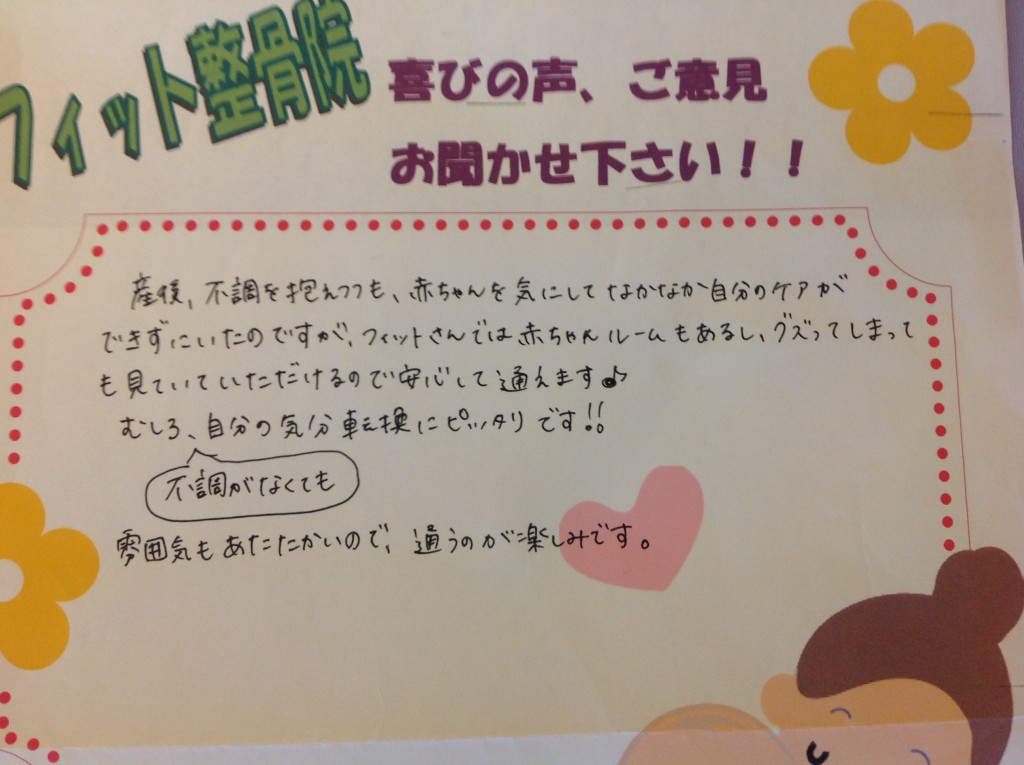 フィット整骨院
喜びの声、ご意見
お聞かせ下さい！！
産後、不調を抱えつつも、赤ちゃんを気にしてなかなか自分のケアが
できずにいたのですが、フィットさんでは赤ちゃんルームもあるし、グズってしまって
も見ていていただけるので安心して通えます♪
むしろ、自分の気分転換にピッタリです!!
不調がなくても
雰囲気もあたたかいので、通うのが楽しみです。